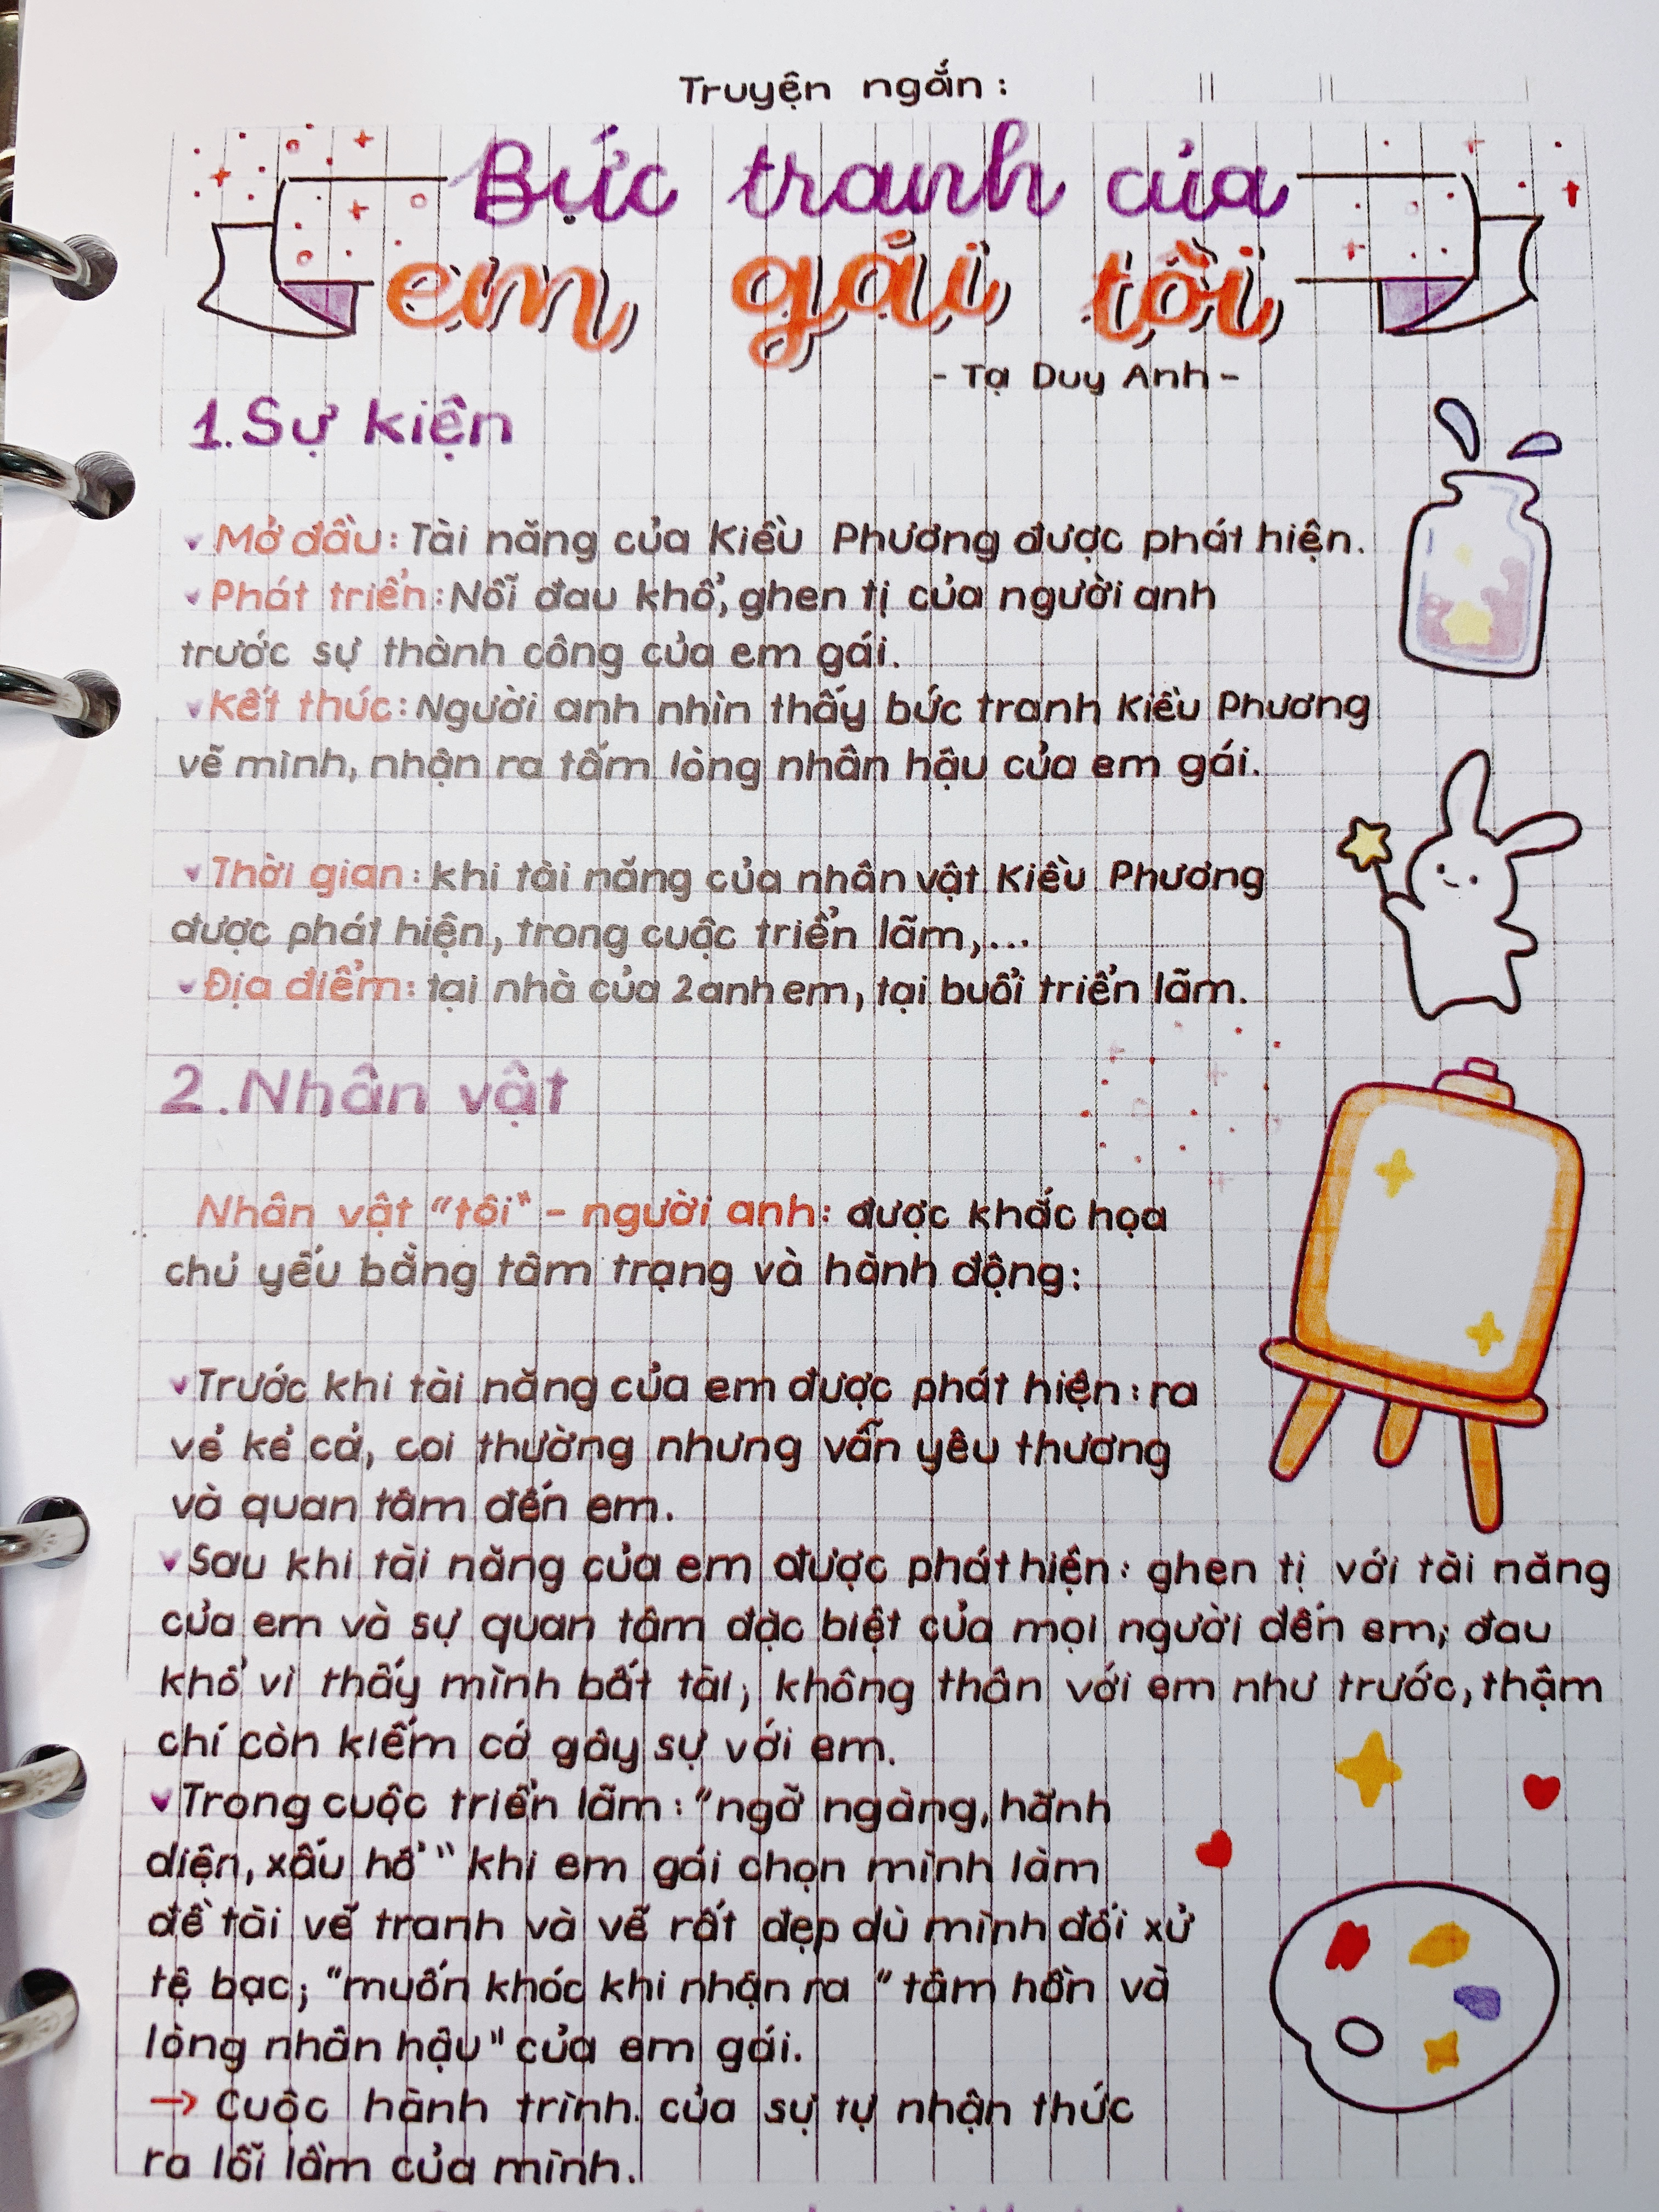 Truyện ngắn:
Bức tranh của
em gái tôi
- Tạ Duy Anh -
1. Sự kiện
Mở đầu: Tài năng của Kiều Phương được phát hiện.
Phát triển: Nỗi đau khổ, ghen tị của người anh
trước sự thành công của em gái.
Kết thúc: Người anh nhìn thấy bức tranh Kiều Phương
vẽ mình, nhận ra tấm lòng nhân hậu của em gái.
Thời gian: khi tài năng của nhân vật Kiều Phương
được phát hiện, trong cuộc triển lãm,...
Địa điểm: tại nhà của 2 anh em, tại buổi triển lãm.
2. Nhân vật
Nhân vật "tôi" - người anh: được khắc họa
chủ yếu bằng tâm trạng và hành động:
Trước khi tài năng của em được phát hiện: ra
vẻ kẻ cả, coi thường nhưng vẫn yêu thương
và quan tâm đến em.
Sau khi tài năng của em được phát hiện: ghen tị với tài năng
của em và sự quan tâm đặc biệt của mọi người đến em; đau
khổ vì thấy mình bất tài; không thân với em như trước, thậm
chí còn kiếm cớ gây sự với em.
Trong cuộc triển lãm: "ngỡ ngàng, hãnh
diện, xấu hổ" khi em gái chọn mình làm
đề tài vẽ tranh và vẽ rất đẹp dù mình đối xử
tệ bạc; "muốn khóc khi nhận ra "tâm hồn và
lòng nhân hậu" của em gái.
→ Cuộc hành trình của sự tự nhận thức
ra lỗi lầm của mình.